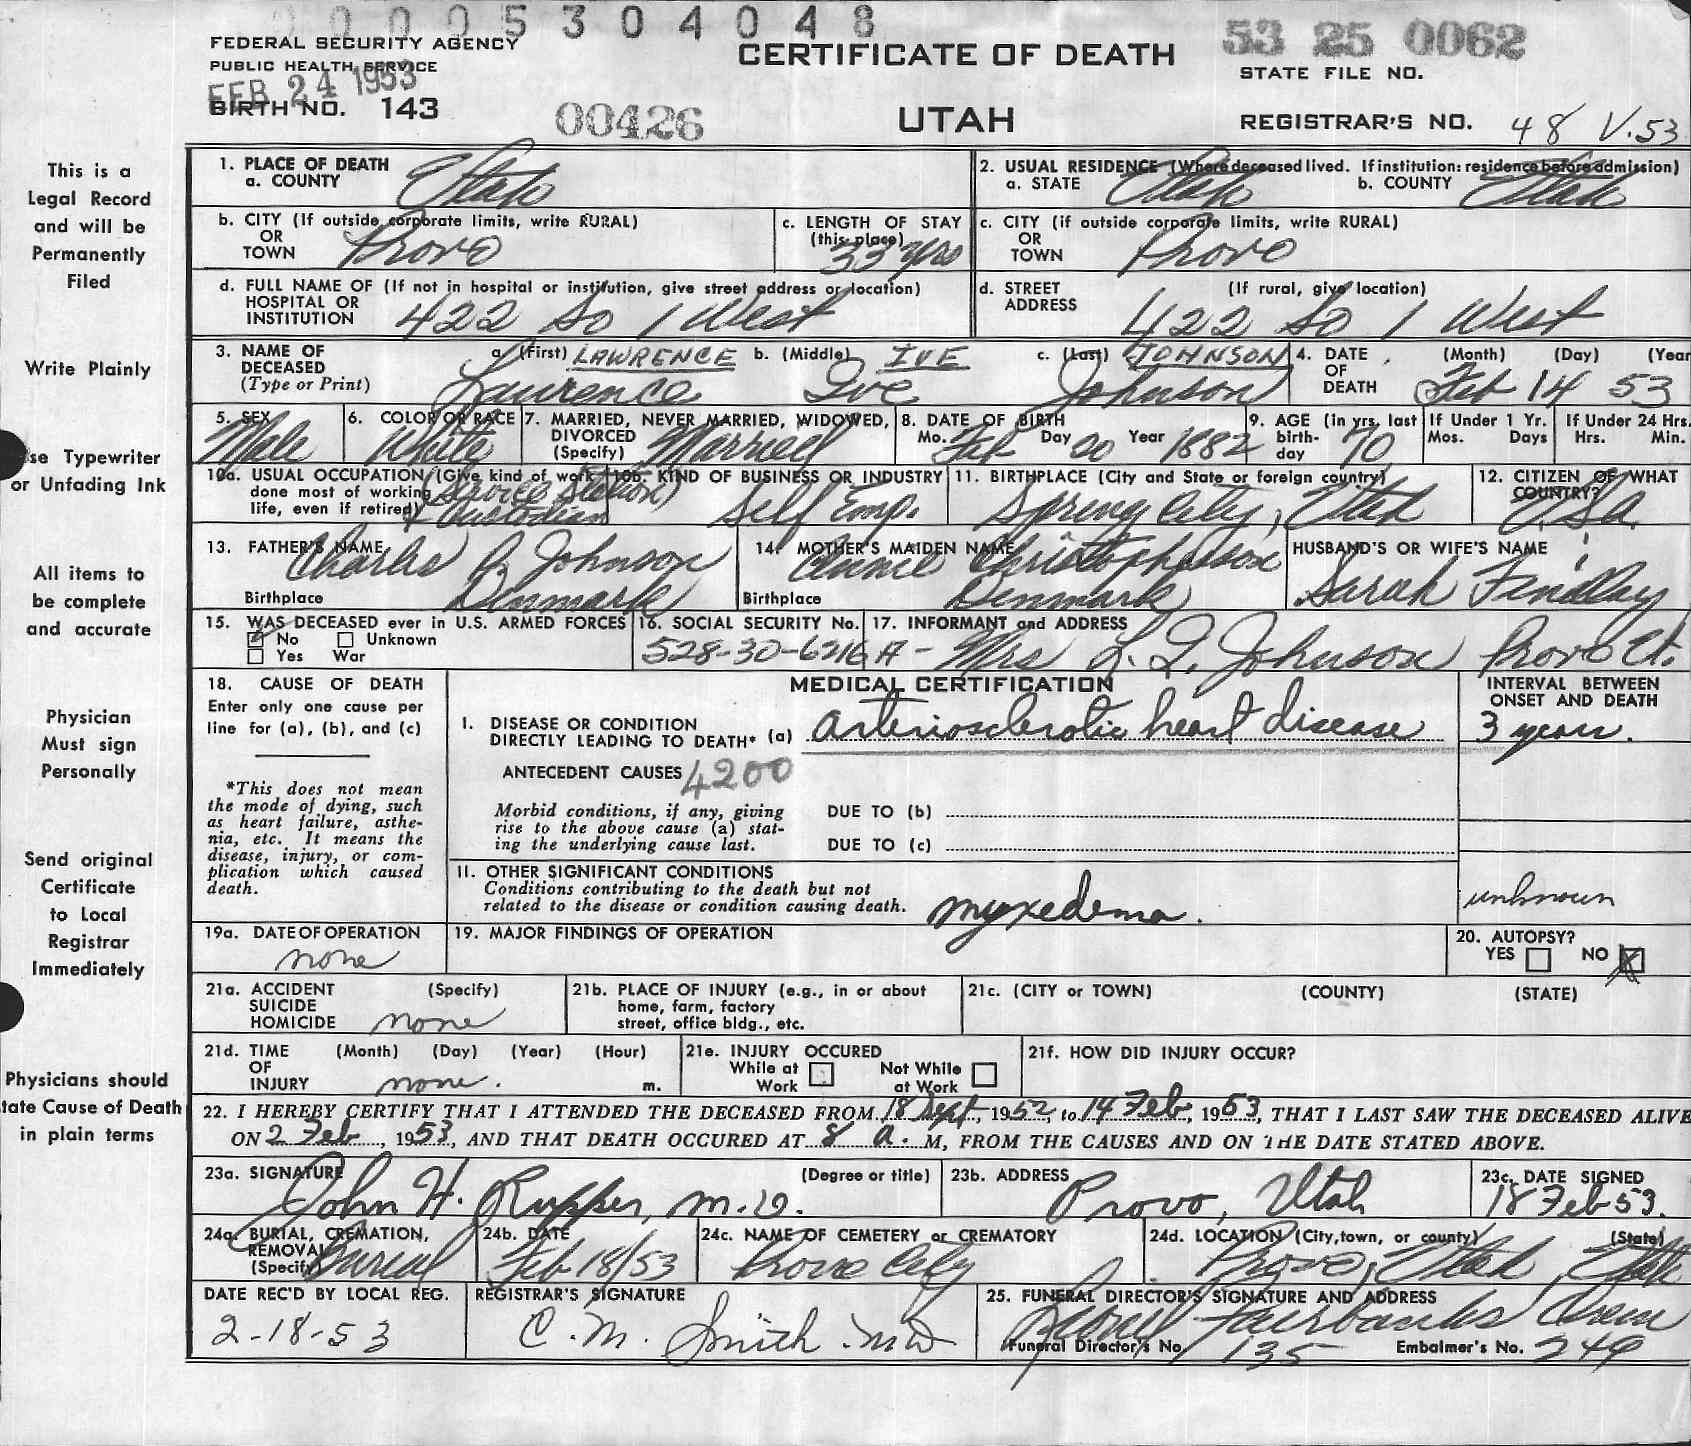 0005304048
FEDERAL SECURITY AGENCY
PUBLIC HEALTH SERVICE
FEB 24 1953
BIRTH NO. 143
00426
CERTIFICATE OF DEATH
UTAH
53 25 0062
STATE FILE NO.
REGISTRAR'S NO. 48 V.53
This is a
Legal Record
and will be
Permanently
Filed
Write Plainly
se Typewriter
or Unfading Ink
All items to
be complete
and accurate
Physician
Must sign
Personally
Send original
Certificate
to Local
Registrar
Immediately
Physicians should
tate Cause of Death
in plain terms
1. PLACE OF DEATH
a. COUNTY Utah
2. USUAL RESIDENCE (Where deceased lived. If institution: residence before admission)
a. STATE Utah b. COUNTY Utah
b. CITY (If outside corporate limits, write RURAL)
OR
TOWN Provo
c. LENGTH OF STAY
(this place) 33 yrs
c. CITY (if outside corporate limits, write RURAL)
OR
TOWN Provo
d. FULL NAME OF (If not in hospital or institution, give street address or location)
HOSPITAL OR
INSTITUTION 422 So 1 West
d. STREET (If rural, give location)
ADDRESS 422 So 1 West
3. NAME OF DECEASED
(Type or Print)
a. (First) LAWRENCE b. (Middle) IVE c. (Last) JOHNSON
Lawrence Ive Johnson
4. DATE OF DEATH (Month) (Day) (Year
Feb 14 53
5. SEX Male
6. COLOR OR RACE White
7. MARRIED, NEVER MARRIED, WIDOWED,
DIVORCED
(Specify) Married
8. DATE OF BIRTH
Mo. Feb Day 20 Year 1882
9. AGE (in yrs. last
birth-
day 70
If Under 1 Yr.
Mos. Days
If Under 24 Hrs.
Hrs. Min.
10a. USUAL OCCUPATION (Give kind of work
done most of working
life, even if retired)
(Service Station)
& Custodian
10b. KIND OF BUSINESS OR INDUSTRY
Self Emp.
11. BIRTHPLACE (City and State or foreign country)
Spring City, Utah
12. CITIZEN OF WHAT
COUNTRY?
U.S.A.
13. FATHER'S NAME
Charles P. Johnson
Birthplace Denmark
14. MOTHER'S MAIDEN NAME
Annie Christophersen
Birthplace Denmark
HUSBAND'S OR WIFE'S NAME
Sarah Findlay
15. WAS DECEASED ever in U.S. ARMED FORCES
No Unknown
Yes War
16. SOCIAL SECURITY No.
528-30-6216 A -
17. INFORMANT and ADDRESS
Mrs L. I. Johnson Provo Ut.
18. CAUSE OF DEATH
Enter only one cause per
line for (a), (b), and (c)
*This does not mean
the mode of dying, such
as heart failure, asthe-
nia, etc. It means the
disease, injury, or com-
plication which caused
death.
MEDICAL CERTIFICATION
INTERVAL BETWEEN
ONSET AND DEATH
I. DISEASE OR CONDITION
DIRECTLY LEADING TO DEATH* (a) Arteriosclerotic heart disease 3 years.
ANTECEDENT CAUSES 4200
Morbid conditions, if any, giving
rise to the above cause (a) stat-
ing the underlying cause last.
DUE TO (b)
DUE TO (c)
II. OTHER SIGNIFICANT CONDITIONS
Conditions contributing to the death but not
related to the disease or condition causing death. myxedema. unknown
19a. DATE OF OPERATION
none
19. MAJOR FINDINGS OF OPERATION
20. AUTOPSY?
YES NO
21a. ACCIDENT (Specify)
SUICIDE
HOMICIDE none
21b. PLACE OF INJURY (e.g., in or about
home, farm, factory
street, office bldg., etc.
21c. (CITY or TOWN) (COUNTY) (STATE)
21d. TIME (Month) (Day) (Year) (Hour)
OF
INJURY none. m.
21e. INJURY OCCURED
While at Work Not While at Work
21f. HOW DID INJURY OCCUR?
22. I HEREBY CERTIFY THAT I ATTENDED THE DECEASED FROM 18 Sept, 1952, to 14 Feb, 1953, THAT I LAST SAW THE DECEASED ALIVE
ON 2 Feb, 1953, AND THAT DEATH OCCURED AT 8 a. M, FROM THE CAUSES AND ON THE DATE STATED ABOVE.
23a. SIGNATURE (Degree or title)
John H. Rupper, M.D.
23b. ADDRESS
Provo, Utah
23c. DATE SIGNED
18 Feb 53.
24a. BURIAL, CREMATION,
REMOVAL
(Specify) Burial
24b. DATE
Feb 18/53
24c. NAME OF CEMETERY or CREMATORY
Provo City
24d. LOCATION (City, town, or county) (State)
Provo, Utah, Utah
DATE REC'D BY LOCAL REG.
2-18-53
REGISTRAR'S SIGNATURE
C. M. Smith. MD
25. FUNERAL DIRECTOR'S SIGNATURE AND ADDRESS
Fairbanks Orem
Funeral Director's No. 135 Embalmer's No. 249